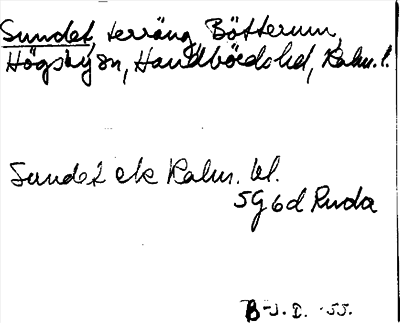 Sundet, terräng, Bötterum,
Högsby sn, Handbörds hd, Kalm. l.
Sundet ek Kalm. bl.
5G6d Ruda
B-J. I. -55.